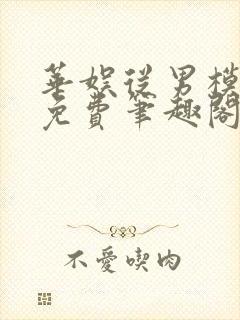 華娛從男模
免費筆趣閣
不愛喫肉